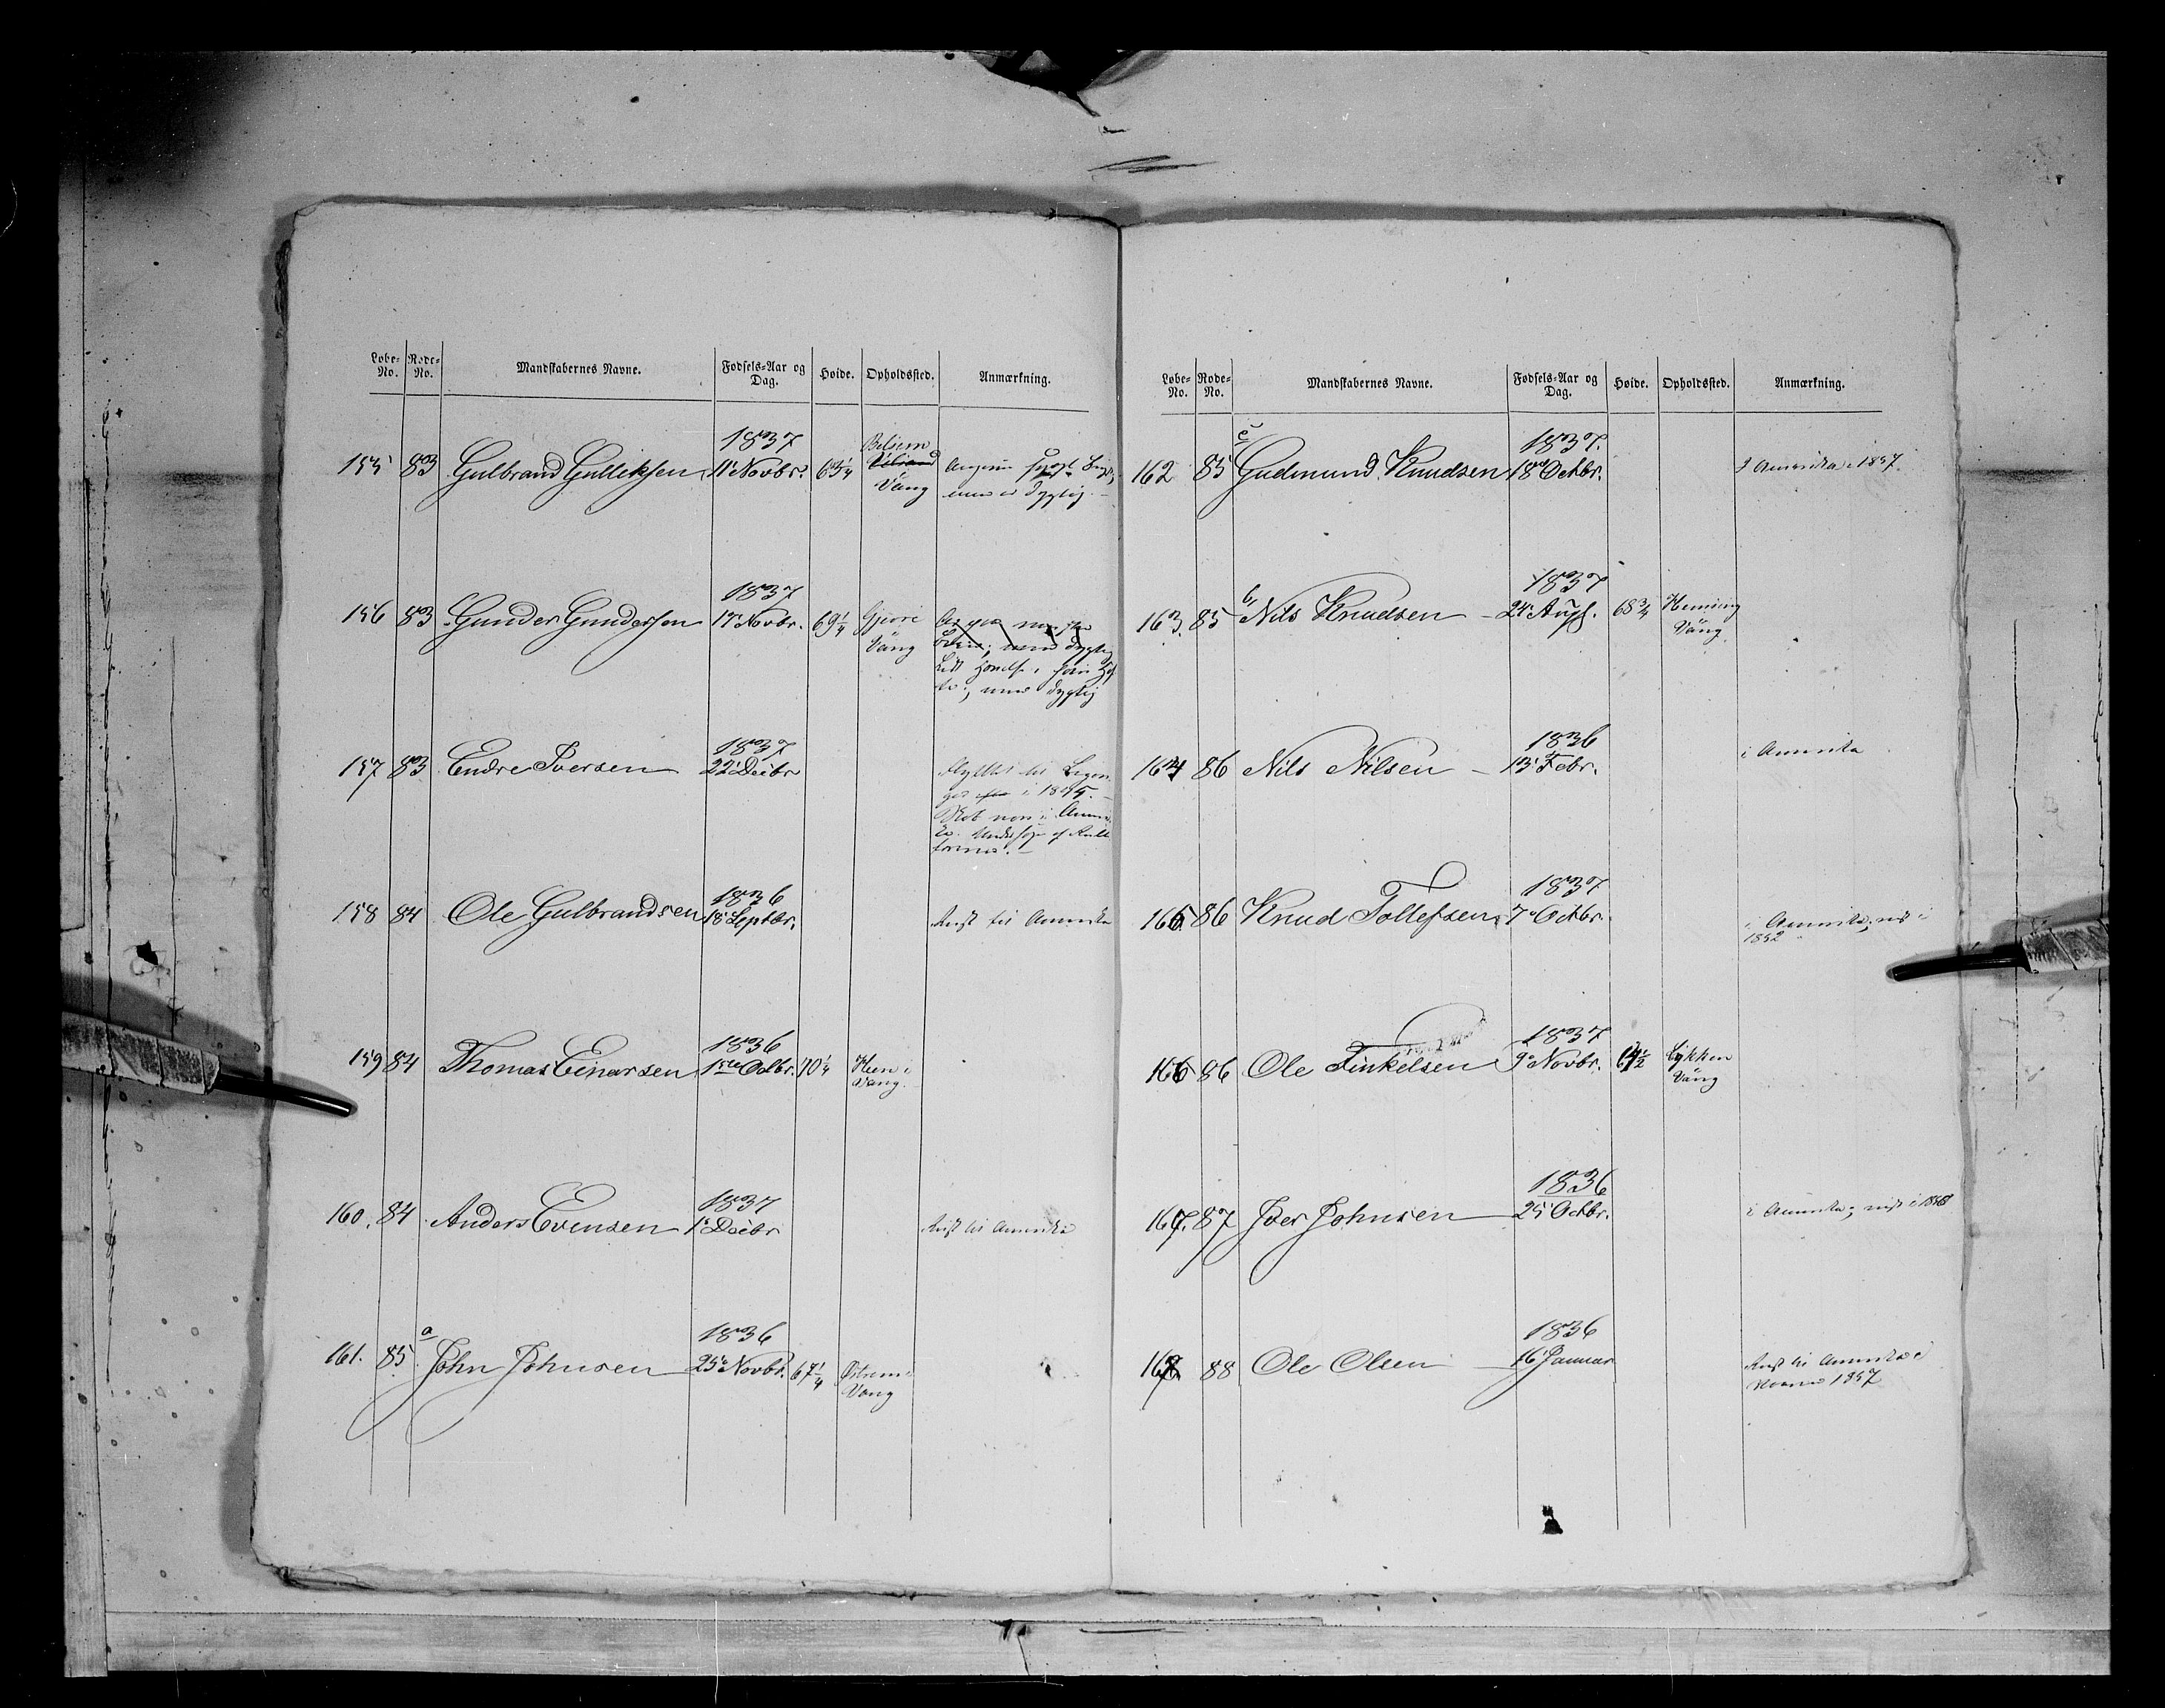 Løbe-No. Rode-No. Mandskabernes Navne. Fødsels-Aar og Dag. Høide. Opholdssted. Anmærkning.
1837 Belsem
155 83 Gulbrand Gulleksen 11' Novbr. 63¼
Vang men er dygtig.
1837
156 83 Gunder Gundersen 17' Novbr. 69¼ Gjøre
Vang men dygtig
men dygtig
1837
157 83 Endre Iversen 22' Decbr
i 1845.
1836
158 84 Ole Gulbrandsen 18' Septbr. Reist til Amerika
1836
159 84 Thomas Einarsen 1ste Octbr. 70¼ Heen i
Vang.
1837
160. 84 Anders Evensen 1' Decbr Reist til Amerika
1836
161. 85. a John Johnsen 25' Novbr. 67¼ Østrem i
Vang
Løbe-No. Rode-No. Mandskabernes Navne. Fødsels-Aar og Dag. Høide. Opholdssted. Anmærkning.
1837.
162 85 c Gudmund Knudsen 18' Octbr. I Amerika 1857.
1837
163. 85 b, Nils Knudsen 24' Aug. 68¾ Heming
Vang
1836
164 86 Nils Nilsen 13' Febr. i Amerika
1837
165 86 Knud Tollefsen 7' Octbr. i Amerika; reist i
1852
1837
166 86 Ole Finkelsen 9' Novbr. Løkken
Vang
1836
167. 87 Iver Johnsen 25' Octbr. i Amerika; reist i
1836
168. 88 Ole Olsen 16' Januar Reist til Amerika i
1857